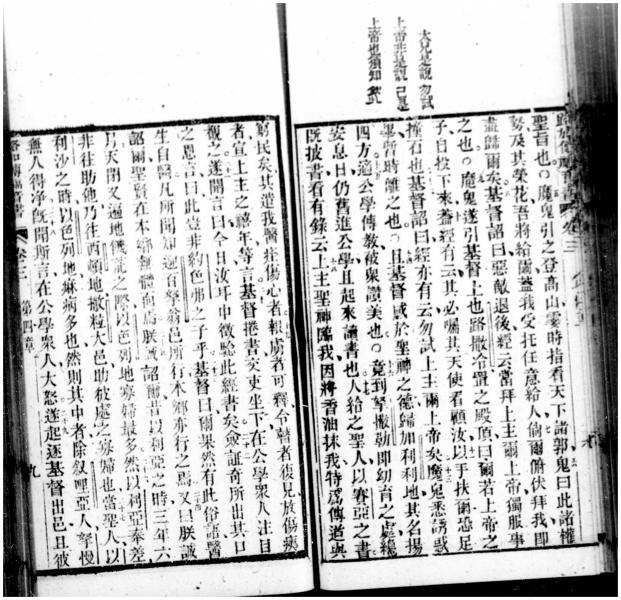 太兄是說勿試
上帝非是說己是
上帝也須知 欽此
聖旨也○魔鬼引之登高山霎時指看天下諸郭鬼曰此諸權
勢及其榮花吾將給爾蓋我受托任意給人倘爾俯伏拜我卽
盡歸爾矣基督詔曰惡敵退後經云當拜上主爾上帝獨服事
之也○魔鬼遂引基督上也路撒冷置之殿頂曰爾若上帝之
子自投下來葢經有云其必囑其天使看顧汝以手扶爾恐足
撞石也基督詔曰經亦有云勿試上主爾上帝矣魔鬼悉誘惑
畢所時離之也○且基督感於聖神之德歸加利利地其名揚
四方遍公學傳教被衆讚美也○竟到拏撒勒卽幼育之處總
安息日仍舊進公學且起來讀書也人給之聖人以賽亞之書
旣披書看有錄云上主聖神臨我因將香油抹我特爲傳道與
窮民矣其遣我醫壯傷心者報虜者可釋令瞽者復見放傷痍
者宣上主之禧年等言基督捲書交吏坐下在公學衆人注目
觀之遂開言曰今日汝耳中徵驗此經書矣僉証奇所出其口
之恩言曰此豈非約色弗之子乎基督曰爾果然有此俗語醫
生自醫凡所聞知迦百拏翁邑所行本鄉亦行之焉又曰朕誠
詔爾聖賢在本鄉無體面焉朕誠詔爾昔以利亞之時三年六
月天閉又遍地饑荒之際以色列地寡婦最多然以利亞奉差
非往助他乃往西頓地撒粒大邑助彼處之寡婦也當聖人以
利沙之時以色列地麻病多也然則其中者除敘哩亞人拏慢
無人得淨旣聞斯言在公學衆人大怒遂起逐基督出邑且彼
路加傳福音書 卷三 第四章 九